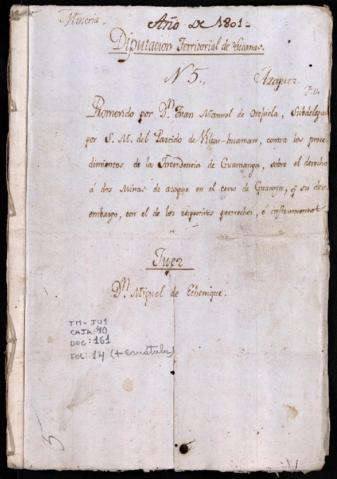 Mineria.
Año de 1801.
Diputacion Territorial de
N 5,,
Promovido por Dn. Juan Manuel de Subdelegado
por S. M. del Partido de Vilcas-huaman, contra los proce-
dimientos, de la Yntendencia de Guamanga, sobre el derecho
á dos Minas de azogue en el cerro de y su des-
embargo, con el de los respectivos pertrechos, é instrumentos
Juez
Dn. Miguel de Echenique.
TM-JU1
CAJA: 90
DOC: 161
FOL: 14 (+ caratula)